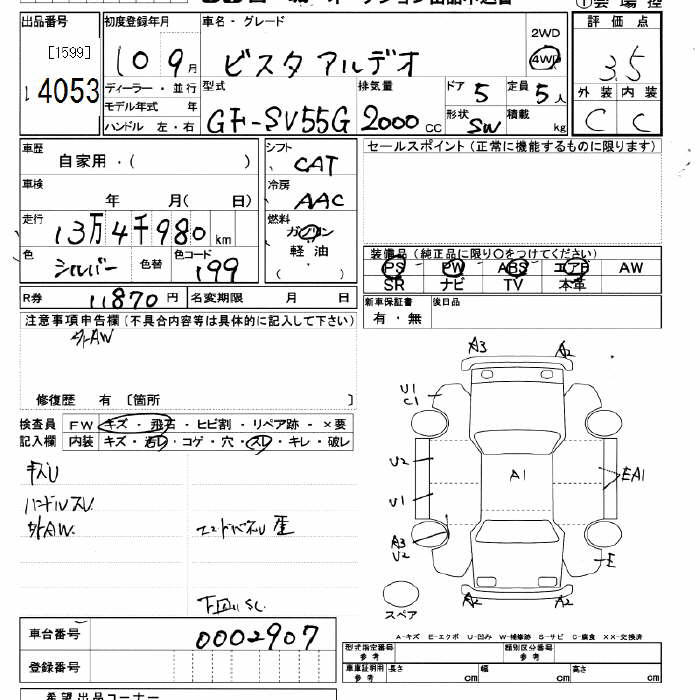 出品番号 初度登録年月 車名・グレード 2WD 評価点
[1599] 4WD
4053 10 9月 ビスタ アルデオ 3.5
ディーラー・並行 型式 排気量 ドア 5 定員 5人 外装 内装
モデル年式 年 GF-SV55G 2000cc 形状 SW 積載 kg C C
ハンドル 左・右
車歴 シフト セールスポイント(正常に機能するものに限ります)
自家用・( ) CAT
車検 冷房
年 月( 日) AAC
走行 燃料
13万4千980km ガソリン
軽油 装備品(純正品に限り○をつけてください)
色 色替 色コード ( ) PS PW ABS エアB AW
シルバー 199 SR ナビ TV 本革
R券 11870円 名変期限 月 日 新車保証書 後日品
有・無
注意事項申告欄(不具合内容等は具体的に記入して下さい)
外AW
修復歴 有 〔箇所 〕
検査員 FW キズ・飛石・ヒビ割・リペア跡・×要
記入欄 内装 キズ・汚レ・コゲ・穴・スレ・キレ・破レ
ハンドルスレ
外AW.
A3 A2
U1
C1
U2 A1 EA1
U1
A3
U2 E
A2 A2
スペア
車台番号 0002907
A-キズ E-エクボ U-凹み W-補修跡 S-サビ C-腐食 XX-交換済
型式指定番号 参考 類別区分番号 参考
登録番号 車庫証明用 参考 長さ cm 幅 cm 高さ cm
希望出品コーナー